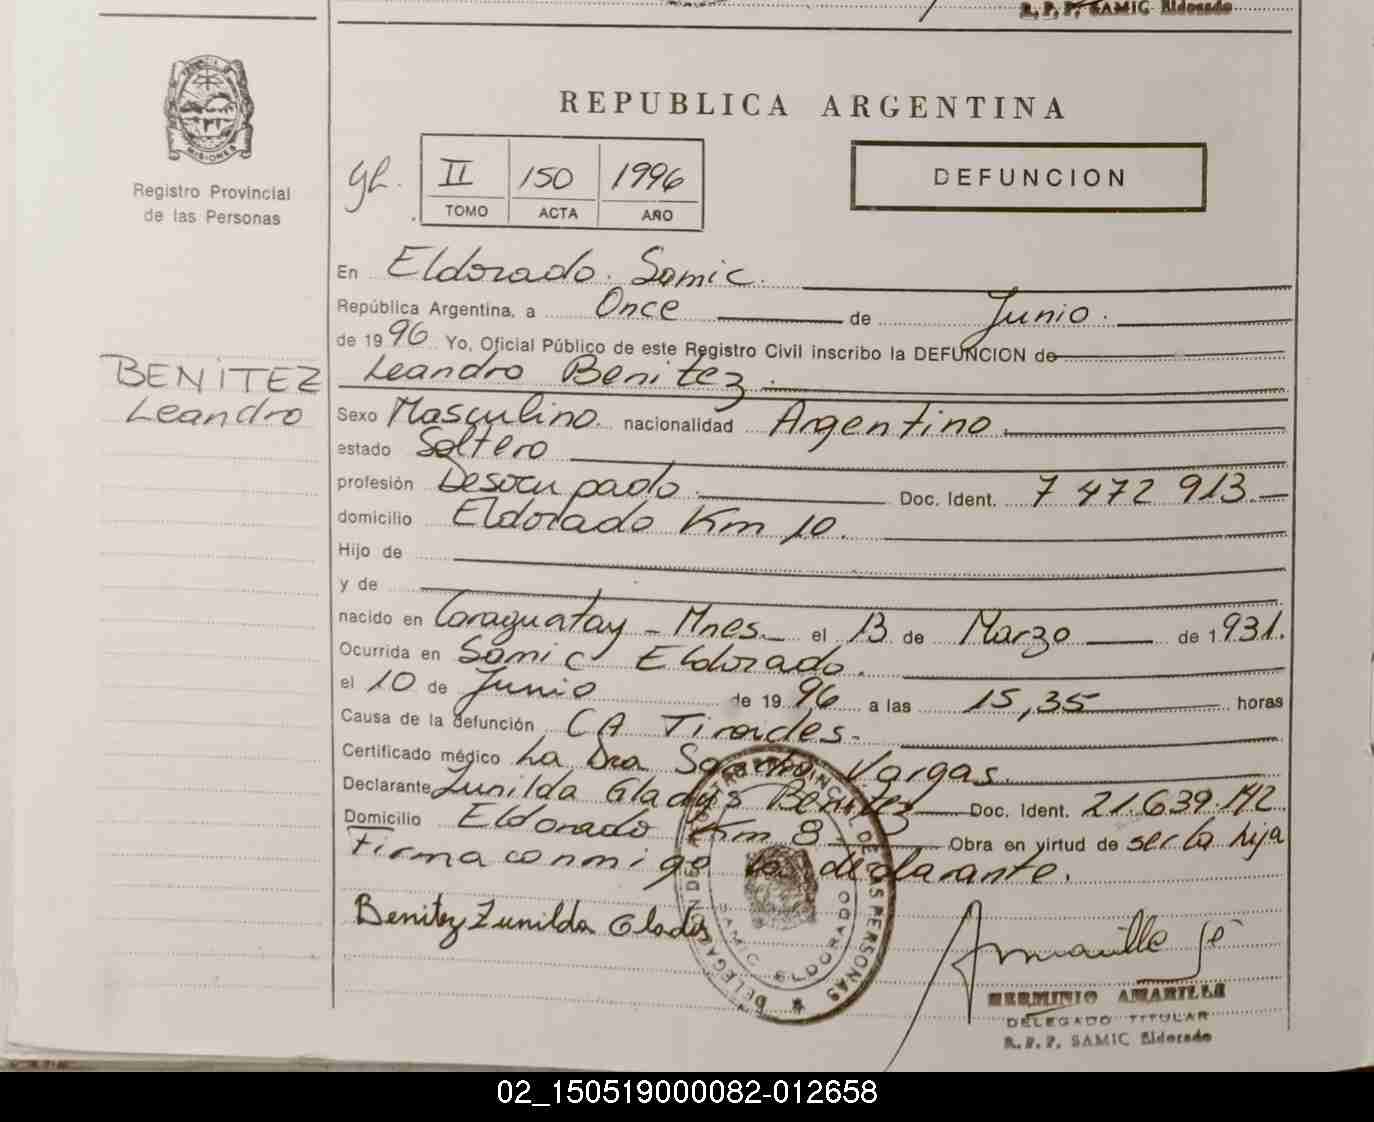 R. P. P. SAMIC Eldorado
PROVINCIA DE
MISIONES
Registro Provincial
de las Personas
BENITEZ
Leandro
REPUBLICA ARGENTINA
II 150 1996
TOMO ACTA AÑO
DEFUNCION
En Eldorado. Samic.
República Argentina, a Once de Junio.
de 1996 Yo, Oficial Público de este Registro Civil inscribo la DEFUNCION de
Leandro Benitez.
Sexo Masculino. nacionalidad Argentino.
estado Soltero
profesión Desocupado. Doc. Ident. 7 472 913
domicilio Eldorado Km 10.
Hijo de
y de
nacido en Caraguatay - Mnes. el 13 de Marzo de 1931.
Ocurrida en Samic Eldorado.
el 10 de Junio de 1996 a las 15,35 horas
Causa de la defunción CA Tiroides.
Certificado médico La Dra Vargas.
Declarante Zunilda Gladys Benitez Doc. Ident. 21.639.142
Domicilio Eldorado Km 8 Obra en virtud de ser la hija
Firma conmigo la declarante.
Benitez Zunilda Gladys
DELEGADO
PROVINCIAL DE LAS PERSONAS
SAMIC ELDORADO
HERMINIO AMARILLA
DELEGADO TITULAR
R. P. P. SAMIC Eldorado
02_150519000082-012658